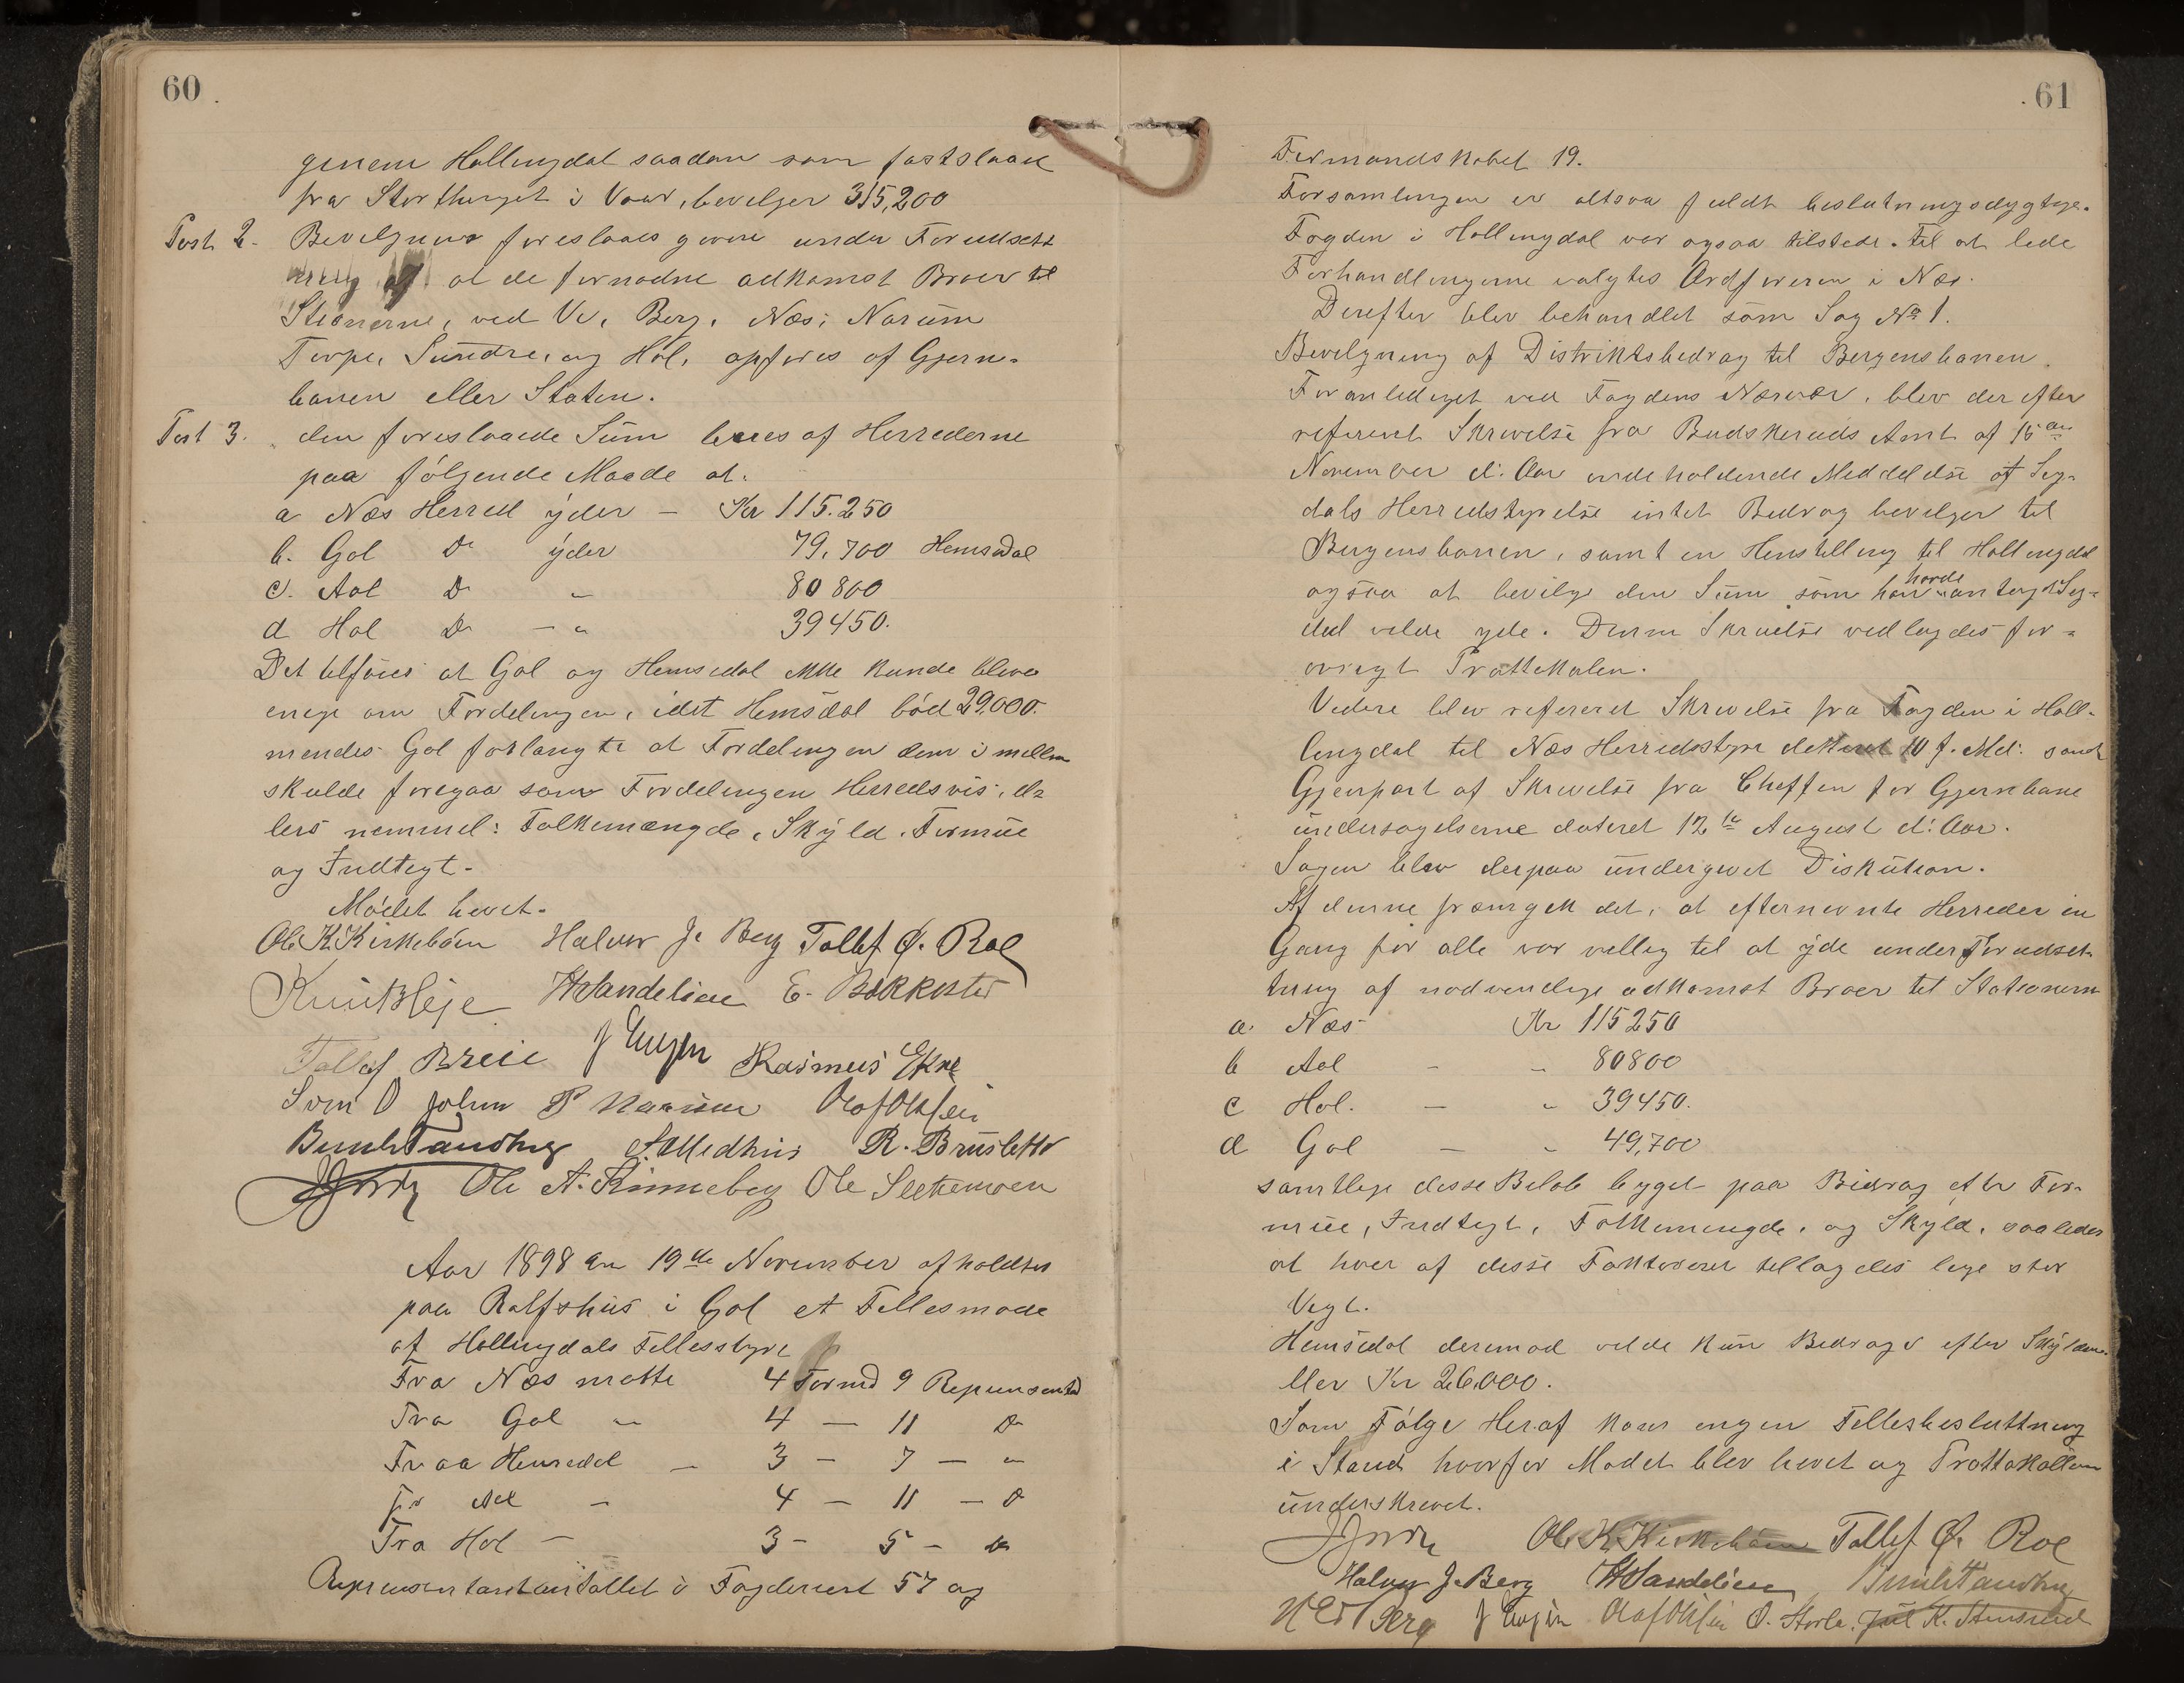 60
genem Hallingdal saadan som fastslaaet
fra Storthinget i Vaar, bevelger 315,200
Post 2. Bevelgning foreslaaes given under Forudsett
ning af at de fornødne adkomst Broer til
Stionerne, ved Berg, Næs, Narum
Torpe, Sundre, og Hol, opføres af Gjern-
banen eller Staten.
Post 3. den foreslaaede Sum bæres af Herrederne
paa følgende Maade at.
a Næs Herred yder - Kr 115.250
b. Gol Do yder 79,700 Hemsedal
c. Aal Do " 80 800
d Hol Do - " 39450.
Det tilføies at Gol og Hemsedal ikke kunde bleve
enige om Fordelingen, idet Hemsdal bød 29,000.
mendes Gol forlangte at Fordelingen dem i mellem
skulde foregaa som Fordelingen Herredsvis, el-
lers nemmel: Folkemængde, Skyld, Formue
og Indtegt.
Mødet hevet.
Ole K. Kirkebøen Halvor J. Berg Tollef Ø. Roe
Knut Bleje HSandelien E. Bakkestø
Tollef Breie J Engen Rasmus Ekre
Sven O John P Narum Olaf Olsen
A Medhus R. Brusletto
Ole A. Rinneberg Ole Slettemoen
Aar 1898 den 19de November afholdtes
paa Rolfshus i Gol et Fellesmøde
af Hallingdals Fellesstyre
Fra Næs møtte 4 Formd 9 Repensented
Fra Gol " 4 - 11 Do
Fraa Hemsedal - 3 - 7 - "
fr Aal - 4 - 11 - D
Fra Hol - 3 - 5 - Do
Represantantantallet i Fogderiet 57 og
61
Formandskabet 19.
Forsamlingen er altsaa fuldt beslutningsdygtige.
Fogden i Hallingdal var ogsaa tilstede. Til at lede
Forhandlingerne valgtes Ordføreren i Næs.
Derefter blev behandlet som Sag No 1.
Bevelgning af Distriktsbedrag til Bergensbanen.
Foranlediget ved Fogdens Nærvær, blev derefter
referert Skrivelse fra Budskeruds Amt af 15de
November d. Aar indeholdende Meddelelse at Sig-
dals Herredstyrelse intet Bedrag bevelger til
Bergensbanen, samt en Henstilling til Hallingdal
ogsaa at bevilge den Sum som han havde antaget Sig-
dal velde yde. Denne Skrivelse vedlagdes for-
øvrigt Prottekolen.
Videre blev referert Skrivelse fra Fogden i Hall-
lingdal til Næs Herredsstyre dateret 10 f. Md. samt
Gjenpart af Skrivelse fra Cheffen for Gjernbane
undersøgelserne dateret 12te August d. Aar.
Sagen blev derpaa undergivet Diskution.
Af denne fremgik det, at efternevnte Herreder en
Gang for alle var vellig til at yde under Forudset-
tning af nødvendige adkomst Broer til Stationerne
a. Næs Kr 115250
b Aal - " 80800
c Hol. - " 39450.
d Gol - " 49,700
samtlige desse Beløb bygget paa Bidrag efter For-
mue, Indtegt, Folkemengde, og Skyld, saaledes
at hver af desse Faktorerer tellagdes lige stor
Vegt.
Hemsedal derimod velde kun Bedrage efter Skylden
ller Kr 26,000.
Som Følge Heraf kom ingen Fellesbesluttning
i Stand hvorfor Mødet blev hevet og Prottokollen
underskrevet.
Ole K. Kirkebøen Tollef Ø. Roe
Halvor J. Berg HSandelien
N E Berg J Engen Olaf Olsen O. Storla. Jul K. Stensrud